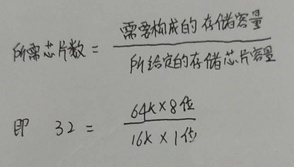 需要构成的存储容量
所需芯片数 =
所给定的存储芯片容量
64K×8位
即 32 =
16K×1位